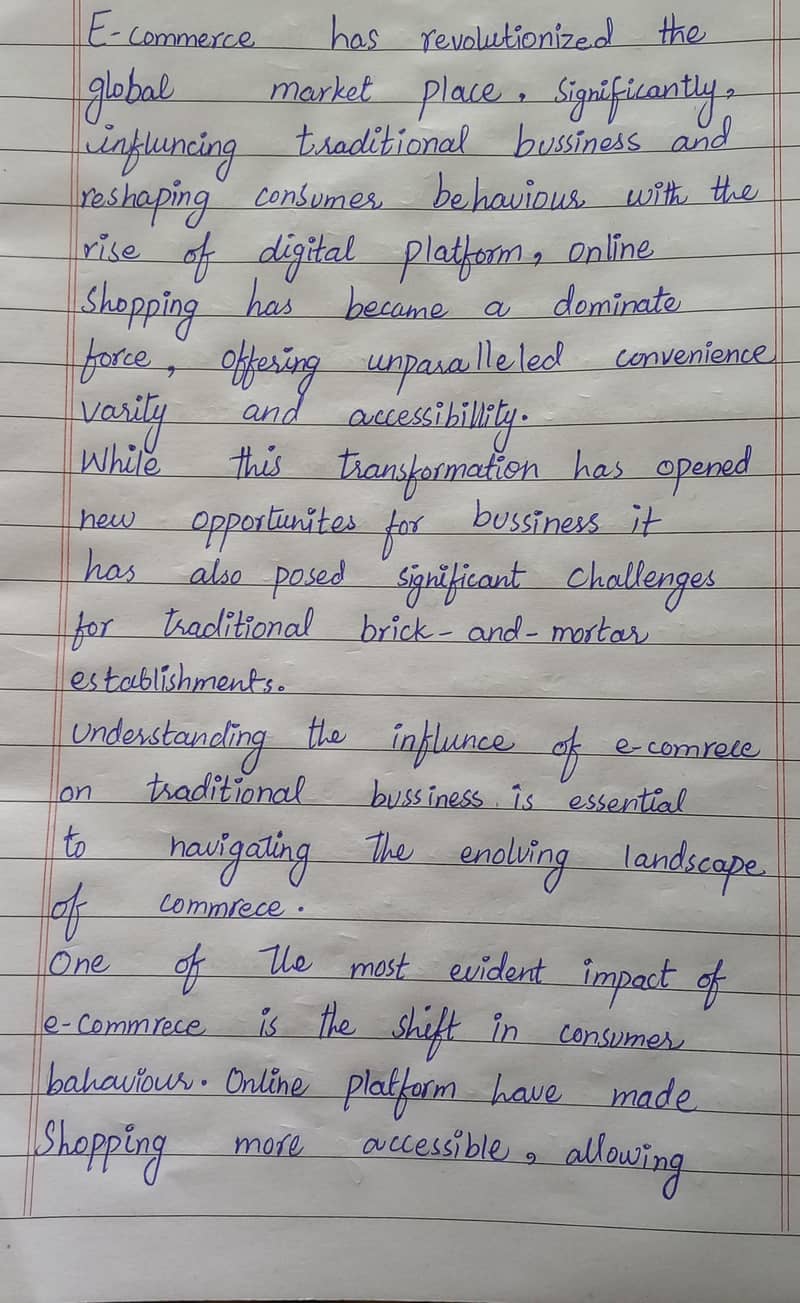 E-commerce has revolutionized the
global market place, significantly,
influncing traditional bussiness and
reshaping consumer behaviour with the
rise of digital platform, online
shopping has became a dominate
force, offering unparalleled convenience
varity and accessibillity.
While this transformation has opened
new opportunites for bussiness it
has also posed significant challenges
for traditional brick-and-mortar
establishments.
Understanding the influnce of e-comrece
on traditional bussiness is essential
to navigating the enolving landscape
of commrece.
One of the most evident impact of
e-commrece is the shift in consumer
bahaviour. Online platform have made
Shopping more accessible, allowing